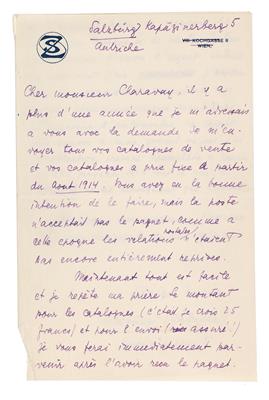 SZ
Salzburg Kapuzinerberg 5
Autriche
VIII. KOCHGASSE 8
WIEN
Cher monsieur Charavay, il y a
plus d'une année que je m'adressais
a vous avec la demande de m'en-
voyer tous vos catalogues de vente
et vos catalogues a prix fixe a partir
du Aout 1914. Vous avez eu la bonne
intention de le faire, mais la poste
n'acceptait pas le paquet, comme a
cette epoque les relations postales n'etaient
pas encore entièrement reprises.
Maintenant tout est facile
et je repète ma prière. Le montant
pour les catalogues (c'était je crois 25
francs) et pour l'envoi (assuré!)
je vous ferai immediatement par-
venir après l'avoir recu le paquet.